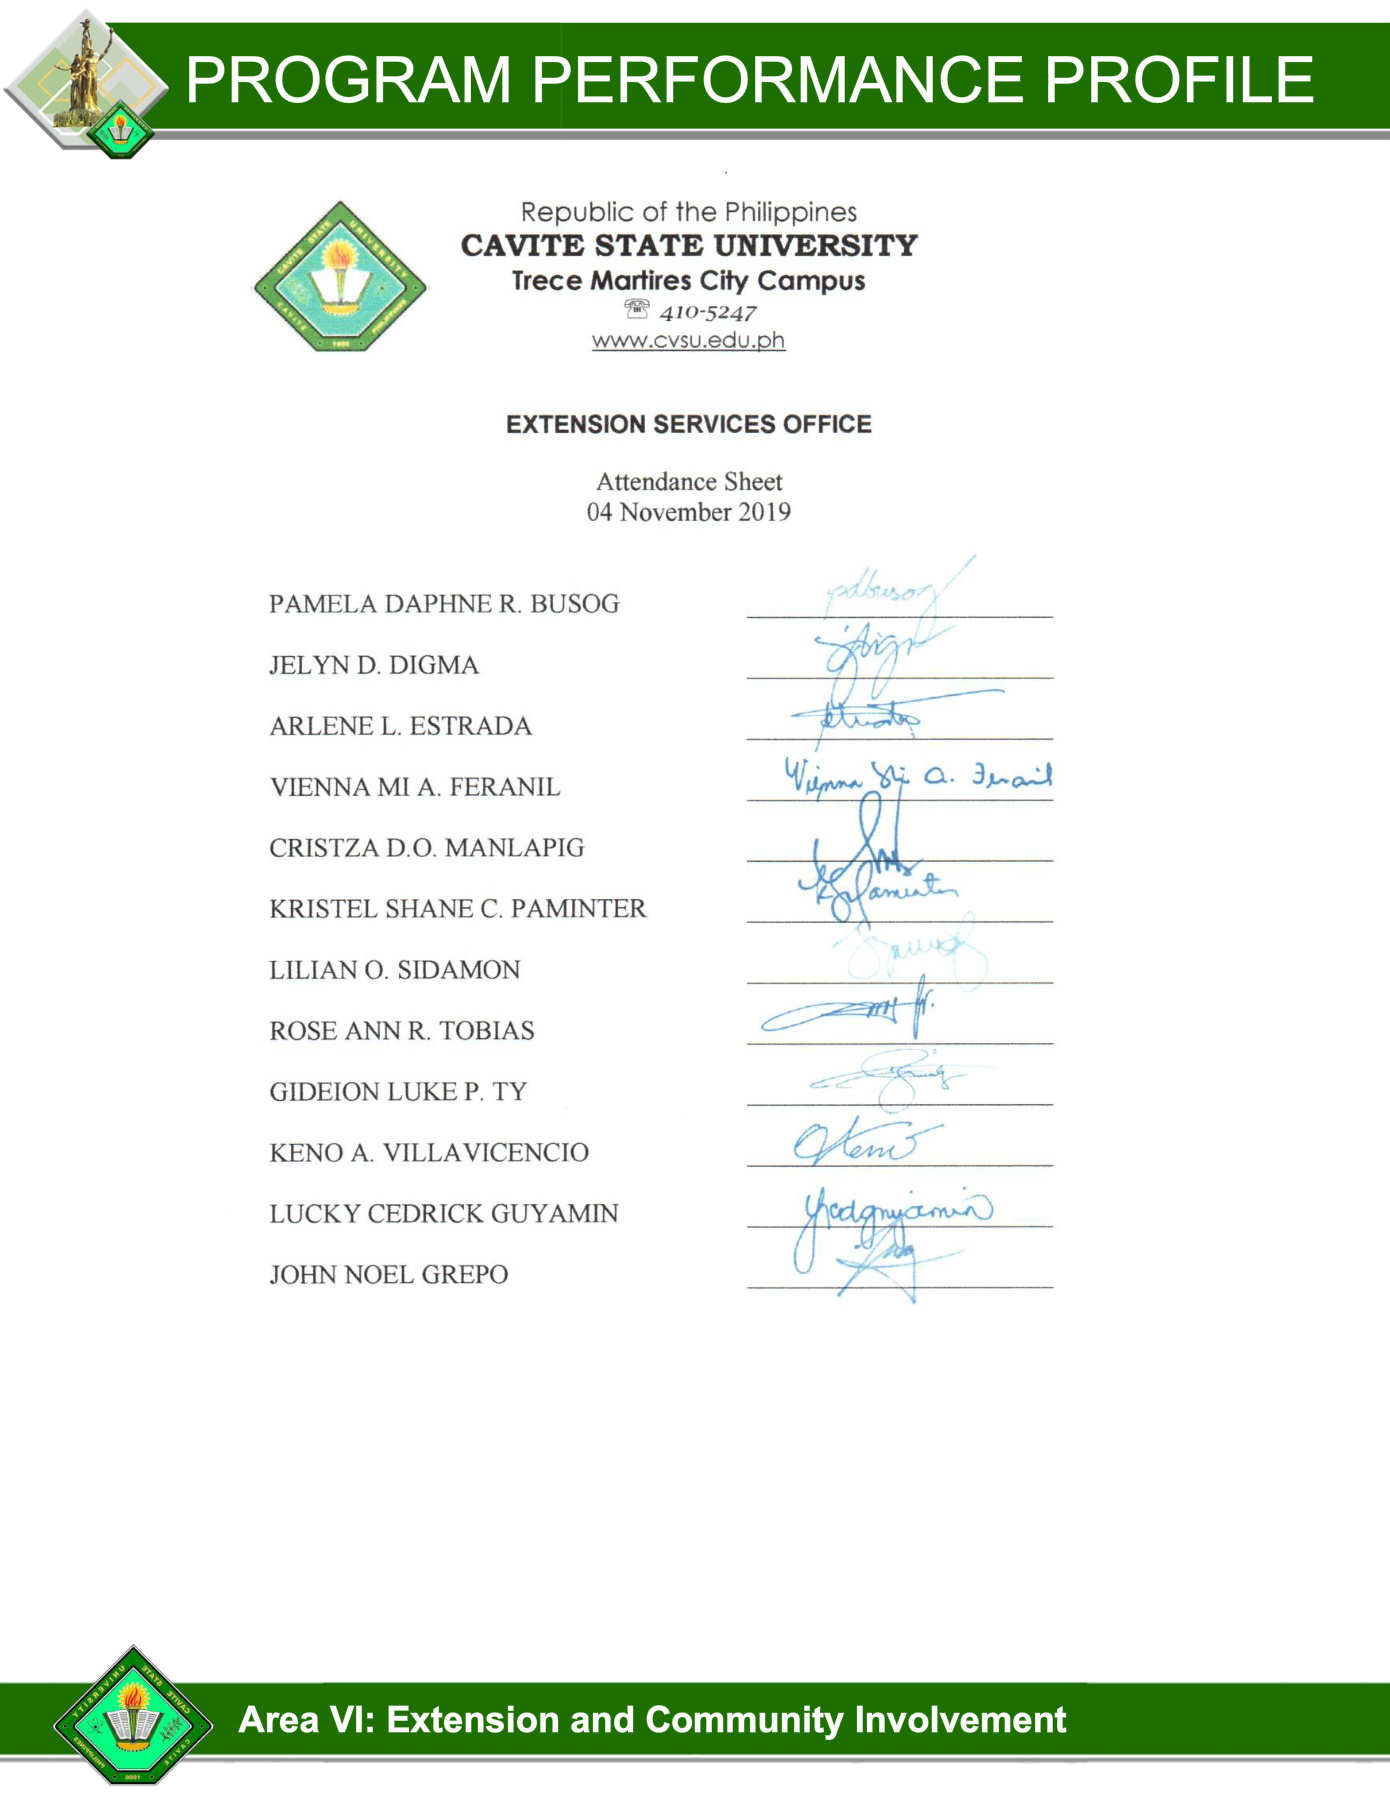 PROGRAM PERFORMANCE PROFILE
Republic of the Philippines
CAVITE STATE UNIVERSITY
Trece Martires City Campus
☏ 410-5247
www.cvsu.edu.ph
CAVITE STATE UNIVERSITY
CAVITE PHILIPPINES
1906
EXTENSION SERVICES OFFICE
Attendance Sheet
04 November 2019
PAMELA DAPHNE R. BUSOG pdbusog
JELYN D. DIGMA
ARLENE L. ESTRADA
VIENNA MI A. FERANIL Vienna Mi A. Feranil
CRISTZA D.O. MANLAPIG
KRISTEL SHANE C. PAMINTER
LILIAN O. SIDAMON
ROSE ANN R. TOBIAS
GIDEION LUKE P. TY
KENO A. VILLAVICENCIO
LUCKY CEDRICK GUYAMIN
JOHN NOEL GREPO
Area VI: Extension and Community Involvement